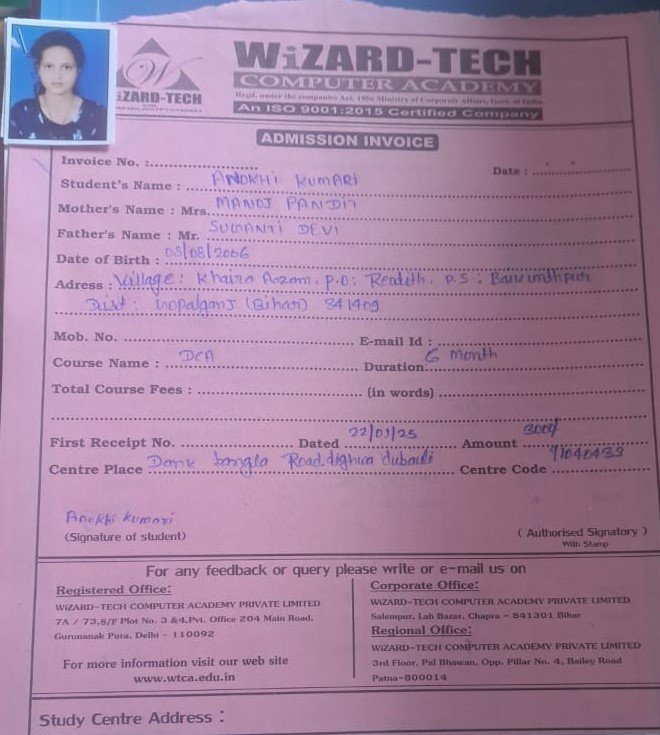 WiZARD-TECH
COMPUTER ACADEMY
Regd. under the companies Act, 1956 Ministry of Corporate Affairs, Govt. of India.
An ISO 9001:2015 Certified Company
W
WiZARD-TECH
ADMISSION INVOICE
Invoice No. : Date :
Student's Name : ANOKHI KUMARI
Mother's Name : Mrs. MANOJ PANDIT
Father's Name : Mr. SUMANTI DEVI
Date of Birth : 08/08/2006
Adress : Village: Khaira Aazam. P.O: P.S: Baikunthpur
Dist: Gopalganj (Bihar) 841409
Mob. No. E-mail Id :
Course Name : DCA Duration 6 Month
Total Course Fees : (in words)
First Receipt No. Dated 22/01/25 Amount 300/
Centre Place Dank bangla Road, dighwa dubauli Centre Code 91040439
Anokhi Kumari
(Signature of student)
( Authorised Signatory )
With Stamp
For any feedback or query please write or e-mail us on
Registered Office:
WiZARD-TECH COMPUTER ACADEMY PRIVATE LIMITED
7A / 73,S/F Plot No. 3 &4,Pvt. Office 204 Main Road,
Gurunanak Pura, Delhi - 110092
For more information visit our web site
www.wtca.edu.in
Corporate Office:
WiZARD-TECH COMPUTER ACADEMY PRIVATE LIMITED
Salempur, Lah Bazar, Chapra - 841301 Bihar
Regional Office:
WiZARD-TECH COMPUTER ACADEMY PRIVATE LIMITED
3rd Floor, Pal Bhawan, Opp. Pillar No. 4, Bailey Road
Patna-800014
Study Centre Address :